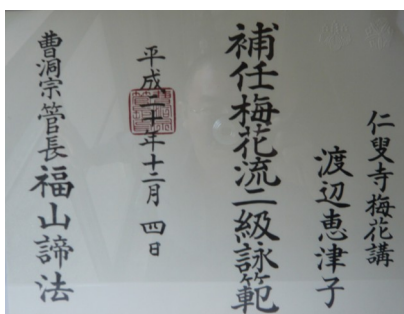 仁叟寺梅花講
渡辺恵津子
補任梅花流二級詠範
平成二十年十二月 四日
曹洞宗管長福山諦法